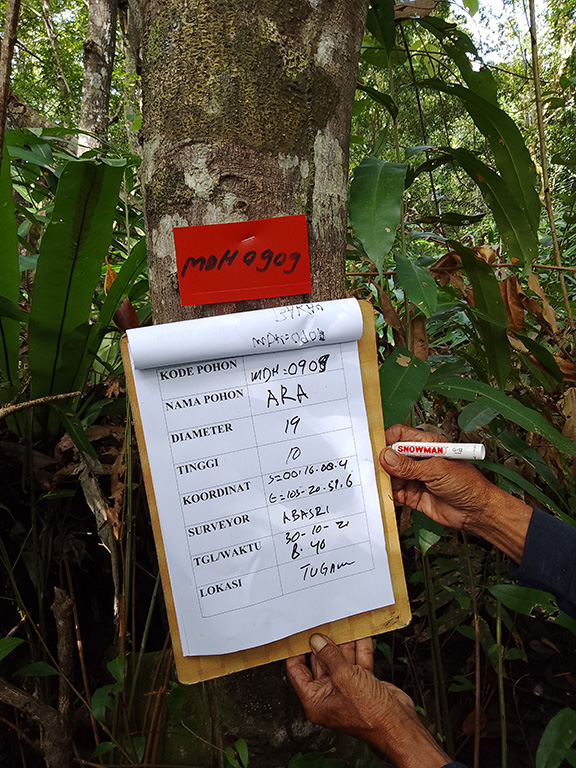 MDH 0909
KODE POHON MDH=0909
NAMA POHON ARA
DIAMETER 19
TINGGI 10
KOORDINAT S=00:16.08.4
E=103-20.59.6
SURVEYOR ABASRI
TGL/WAKTU 30-10-21
8.40
LOKASI
SNOWMAN